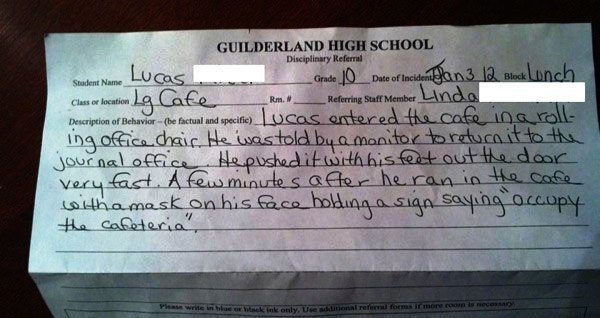 GUILDERLAND HIGH SCHOOL
Disciplinary Referral
Student Name Lucas Grade 10 Date of Incident Jan 3 12 Block Lunch
Class or location Lg Cafe Rm. # Referring Staff Member Linda
Description of Behavior – (be factual and specific) Lucas entered the cafe in a roll-
ing office chair. He was told by a monitor to return it to the
journal office. He pushed it with his feet out the door
very fast. A few minutes after he ran in the cafe
with a mask on his face holding a sign saying "occupy
the cafeteria".
Please write in blue or black ink only. Use additional referral forms if more room is necessary.